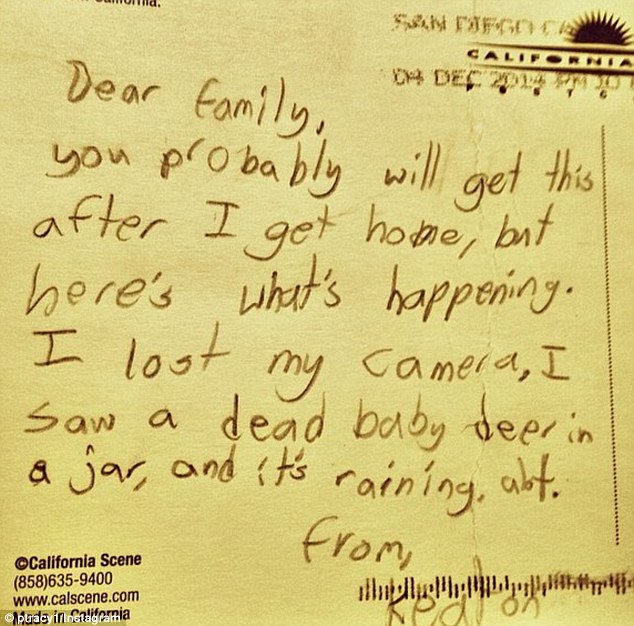 SAN DIEGO CA
CALIFORNIA
04 DEC 2014 PM 10
Dear family,
you probably will get this
after I get home, but
here's what's happening.
I lost my camera, I
saw a dead baby deer in
a jar, and it's raining, alot.
from,
Keaton
©California Scene
(858)635-9400
www.calscene.com
Made in California